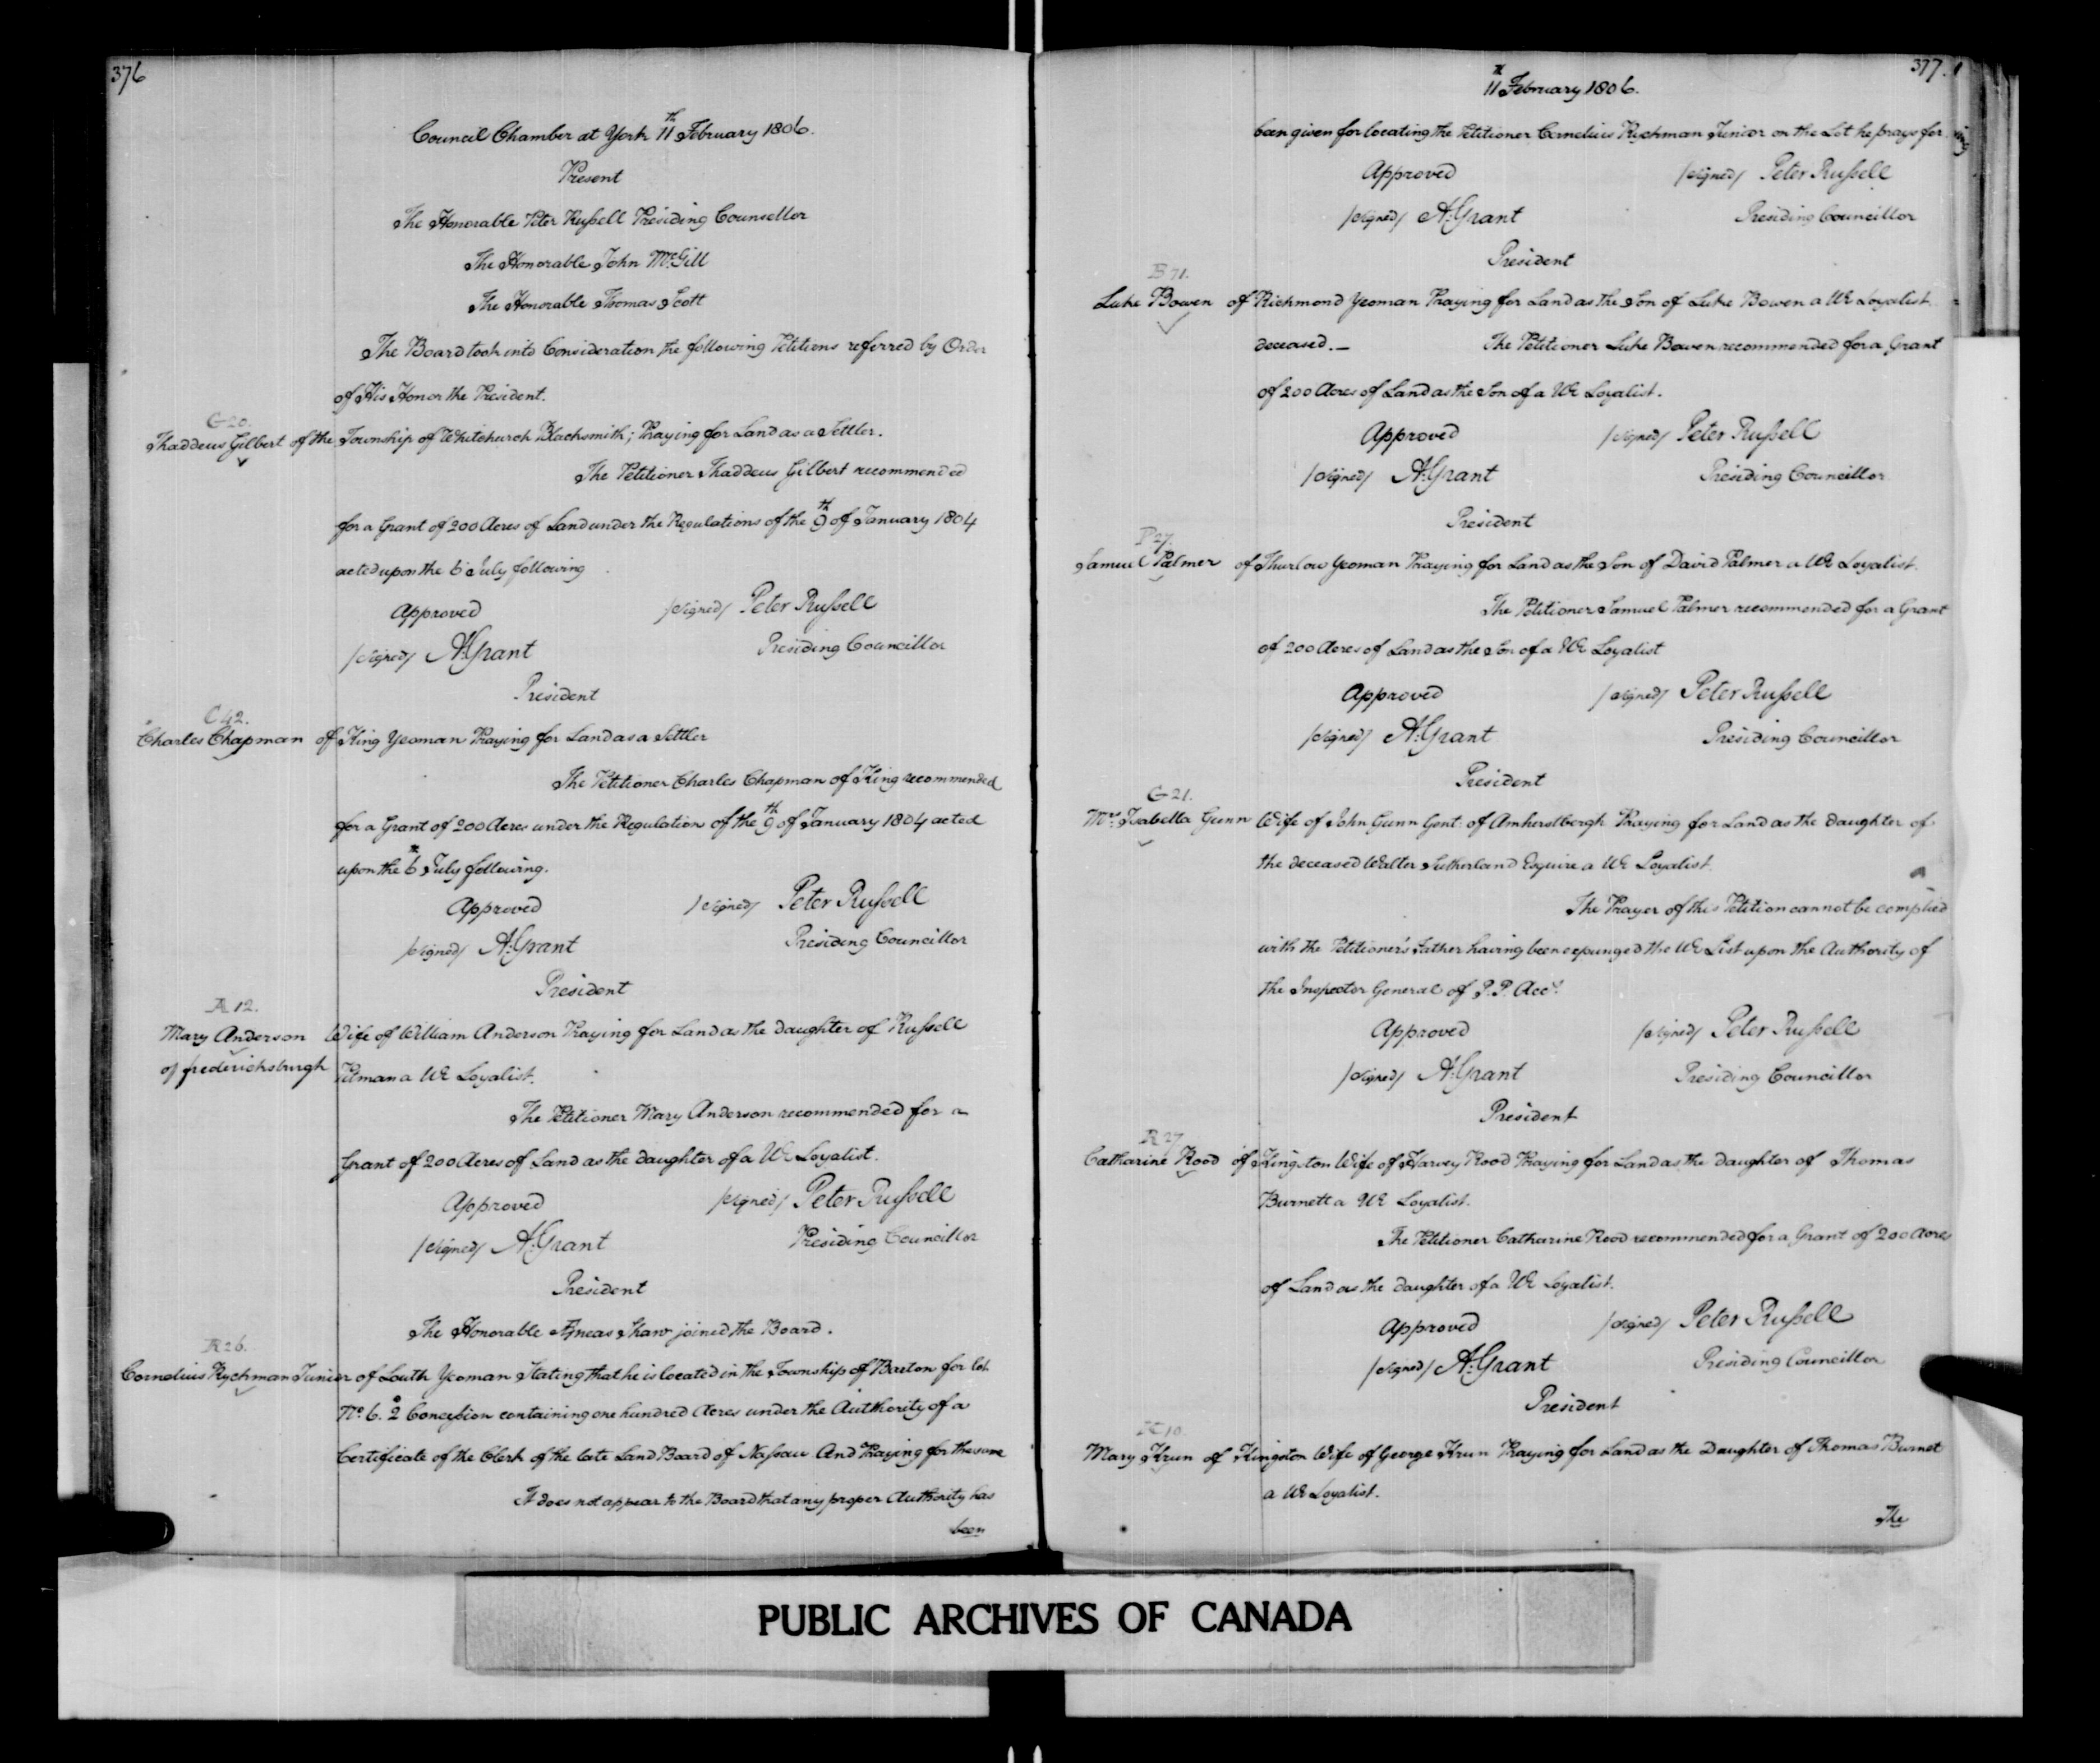 376
Council Chamber at York 11th February 1806.
Present
The Honorable Peter Russell Presiding Counsellor
The Honorable John McGill
The Honorable Thomas Scott
The Board took into Consideration the following Petitions referred by Order
of His Honor the President.
G 20.
Thaddeus Gilbert of the Township of Whitchurch Blacksmith; Praying for Land as a Settler.
The Petitioner Thaddeus Gilbert recommended
for a Grant of 200 Acres of Land under the Regulations of the 9th of January 1804
acted upon the 6 July following
Approved /signed/ Peter Russell
/signed/ A. Grant Presiding Councillor
President
C 42.
Charles Chapman of King Yeoman Praying for Land as a Settler
The Petitioner Charles Chapman of King recommended
for a Grant of 200 Acres under the Regulation of the 9th of January 1804 acted
upon the 6th July following.
Approved /signed/ Peter Russell
/signed/ A. Grant Presiding Councillor
President
A 12.
Mary Anderson Wife of William Anderson Praying for Land as the daughter of Russell
of frederichsburgh Pitman a UE Loyalist.
The Petitioner Mary Anderson recommended for a
Grant of 200 Acres of Land as the daughter of a UE Loyalist.
Approved /signed/ Peter Russell
/signed/ A. Grant Presiding Councillor
President
The Honorable Æneas Shaw joined the Board.
R 26.
Cornelius Rychman Junior of Louth Yeoman Stating that he is located in the Township of Barton for lot
No. 6. 2d Concession containing one hundred Acres under the Authority of a
Certificate of the Clerk of the late Land Board of Nassau And Praying for the same
It does not appear to the Board that any proper Authority has
been
377.
11th February 1806.
been given for locating the Petitioner Cornelius Rychman Junior on the Lot he prays for
Approved /signed/ Peter Russell
/signed/ A. Grant Presiding Councillor
President
B 71.
Luke Bowen of Richmond Yeoman Praying for Land as the Son of Luke Bowen a UE Loyalist
deceased.— The Petitioner Luke Bowen recommended for a Grant
of 200 Acres of Land as the Son of a UE Loyalist.
Approved /signed/ Peter Russell
/signed/ A. Grant Presiding Councillor
President
P 27.
Samuel Palmer of Thurlow Yeoman Praying for Land as the Son of David Palmer a UE Loyalist.
The Petitioner Samuel Palmer recommended for a Grant
of 200 Acres of Land as the Son of a UE Loyalist
Approved /signed/ Peter Russell
/signed/ A. Grant Presiding Councillor
President
G 21.
Mrs. Isabella Gunn Wife of John Gunn Gent: of Amherstbergh Praying for Land as the daughter of
the deceased Walter Sutherland Esquire a UE Loyalist.
The Prayer of this Petition cannot be complied
with the Petitioner's Father having been expunged the UE List upon the Authority of
the Inspector General of P. P. Accts.
Approved /signed/ Peter Russell
/signed/ A. Grant Presiding Councillor
President
R 27
Catharine Rood of Kingston Wife of Harvey Rood Praying for Land as the daughter of Thomas
Burnett a UE Loyalist.
The Petitioner Catharine Rood recommended for a Grant of 200 Acres
of Land as the daughter of a UE Loyalist.
Approved /signed/ Peter Russell
/signed/ A. Grant Presiding Councillor
President
K 10.
Mary Krun of Kingston Wife of George Krun Praying for Land as the Daughter of Thomas Burnet
a UE Loyalist.
The
PUBLIC ARCHIVES OF CANADA